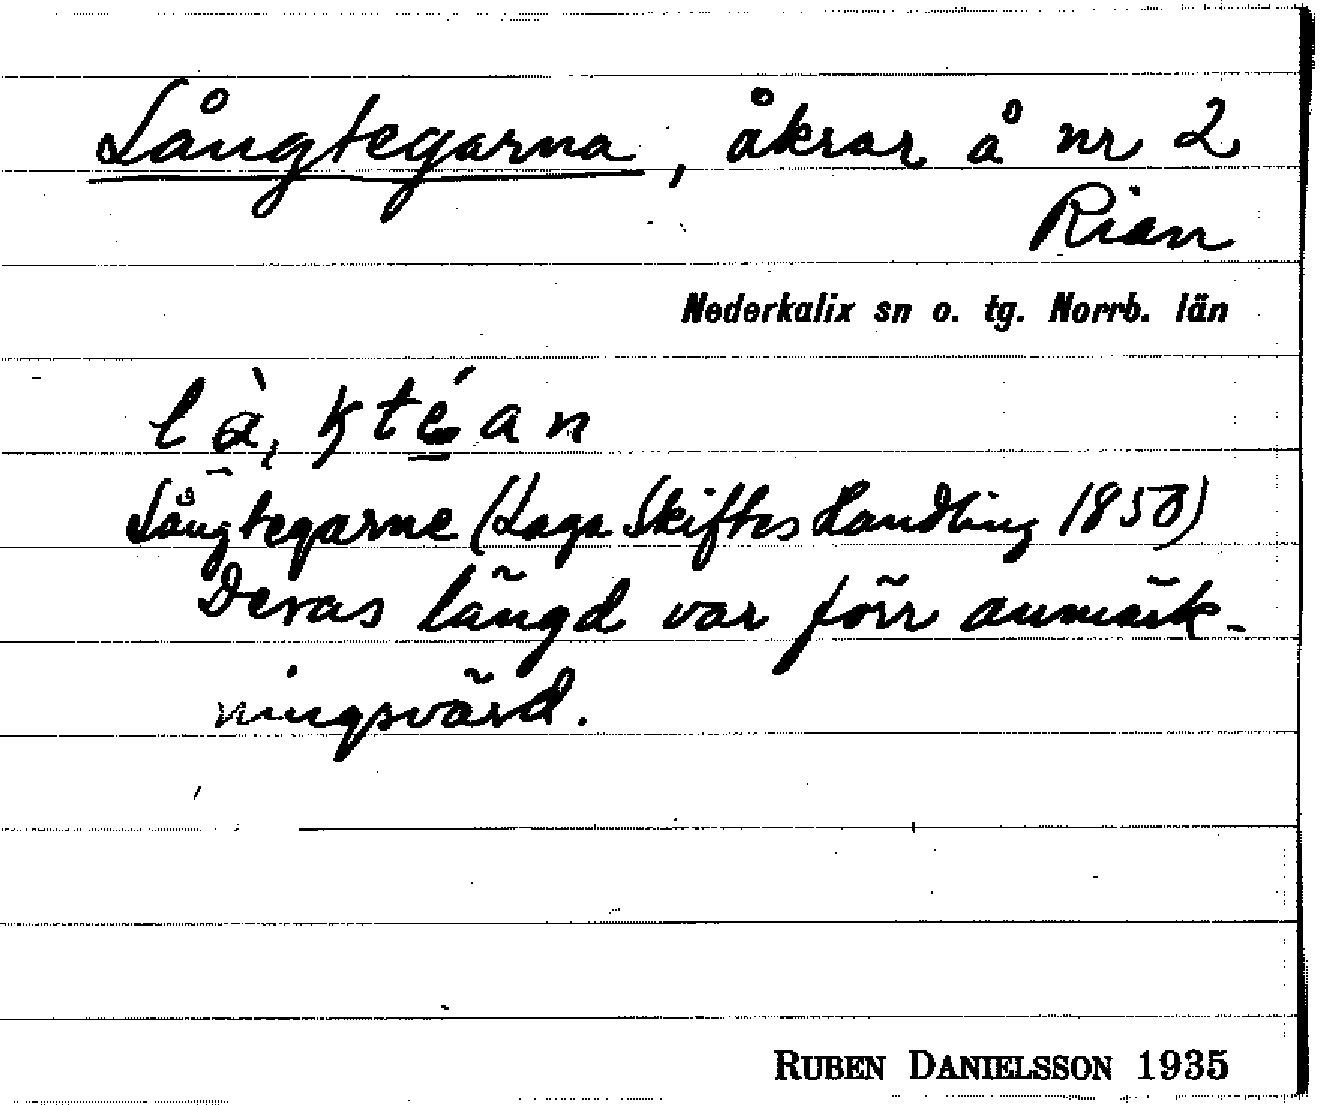 Långtegarna, åkrar å nr 2
Rian
Nederkalix sn o. tg. Norrb. län
là̱ˌkté̱an
Långtegarne (Laga Skiftes Handling 1850)
Deras längd var förr anmärk-
ningsvärd.
RUBEN DANIELSSON 1935